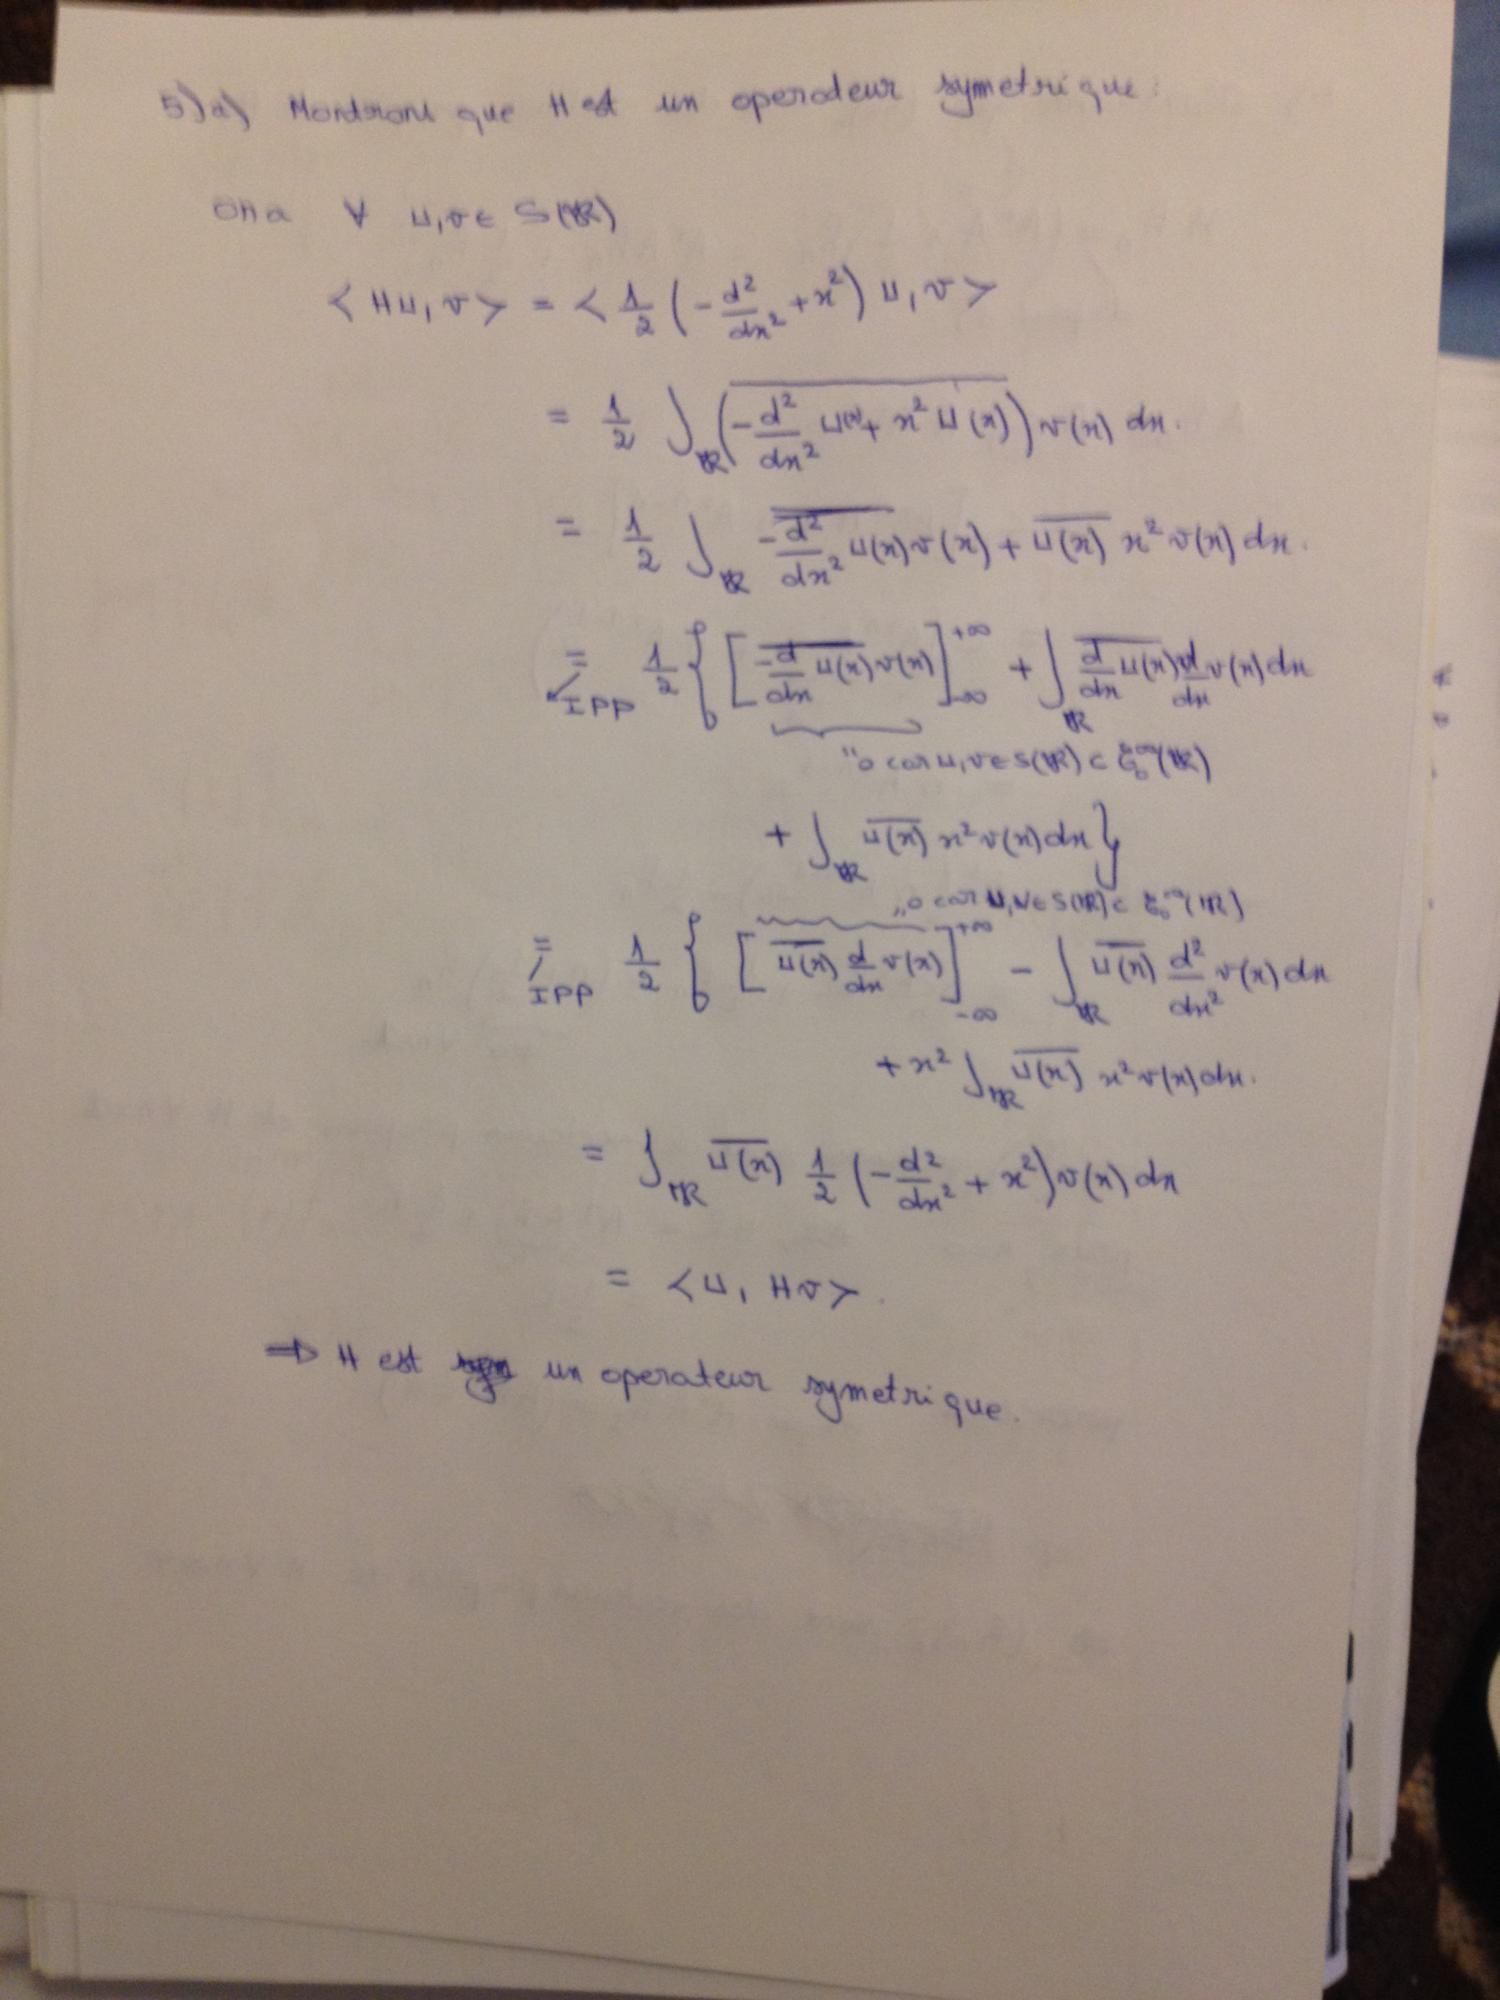 5) a) Montrons que H est un operateur symetrique :
on a ∀ u,v ∈ S(ℝ)
< Hu, v > = < 1/2 ( - d²/dx² + x² ) u, v >
= 1/2 ∫_ℝ \overline{( - d²/dx² u(x) + x² u(x) )} v(x) dx.
= 1/2 ∫_ℝ \overline{- d²/dx² u(x)} v(x) + \overline{u(x)} x² v(x) dx.
= IPP 1/2 { [ \overline{- d/dx u(x)} v(x) ]_{-∞}^{+∞} + ∫_ℝ \overline{d/dx u(x)} d/dx v(x) dx
"0 car u,v ∈ S(ℝ) ⊂ ξ_0^∞(ℝ)
+ ∫_ℝ \overline{u(x)} x² v(x) dx }
"0 car u,v ∈ S(ℝ) ⊂ ξ_0^∞(ℝ)
= IPP 1/2 { [ \overline{u(x)} d/dx v(x) ]_{-∞}^{+∞} - ∫_ℝ \overline{u(x)} d²/dx² v(x) dx
+ x² ∫_ℝ \overline{u(x)} x² v(x) dx.
= ∫_ℝ \overline{u(x)} 1/2 ( - d²/dx² + x² ) v(x) dx
= < u, Hv > .
⇒ H est un operateur symetrique.